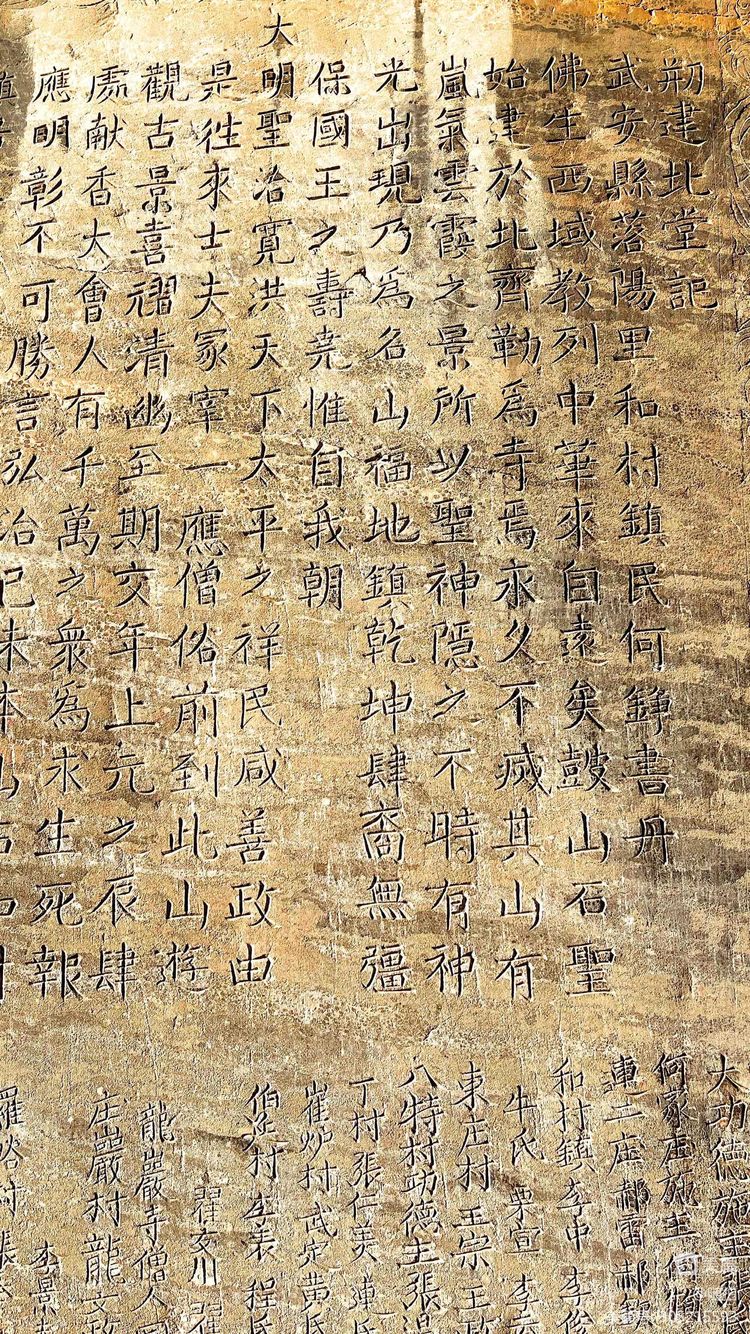 刱建北堂記
武安縣落陽里和村鎮民何錚書丹
佛生西域教列中華來自遠矣鼓山石聖
始建於北齊勒為寺焉永久不滅其山有
嵐氣雲霞之景所以聖神隱之不時有神
光出現乃為名山福地鎮乾坤肆裔無彊
保國王之壽堯惟自我朝
大明聖治寬洪天下太平之祥民咸善政由
是徃來士夫冢宰一應僧俗前到此山遊
觀古景喜禤清幽至期交年上元之辰肆
處献香大會人有千萬之衆為求生死報
應明彰不可勝言弘治己未
大功德施主張
何家庄施主何
連二庄郝雷郝
和村鎮李中李俊
牛氏栗宣李
東庄村王宗王
八特村功德主張
丁村張仁美連氏
崔炉村武定黄氏
伯 村 表程氏
翟 川翟
龍巖寺僧人
庄嚴村龍文
李景
羅峪村張